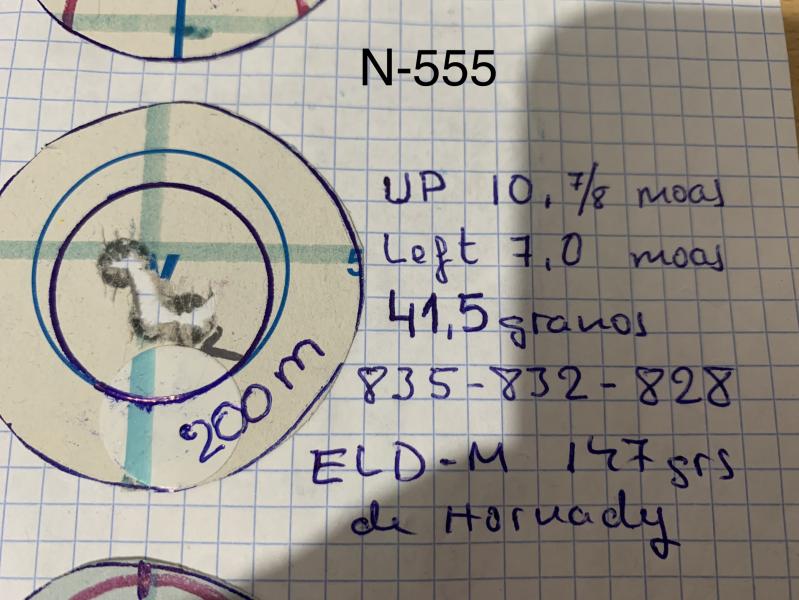 N-555
UP 10,7/8 moas
Left 7,0 moas
41,5 granos
835-832-828
ELD-M 147 grs
de Hornady
V
5
200 m